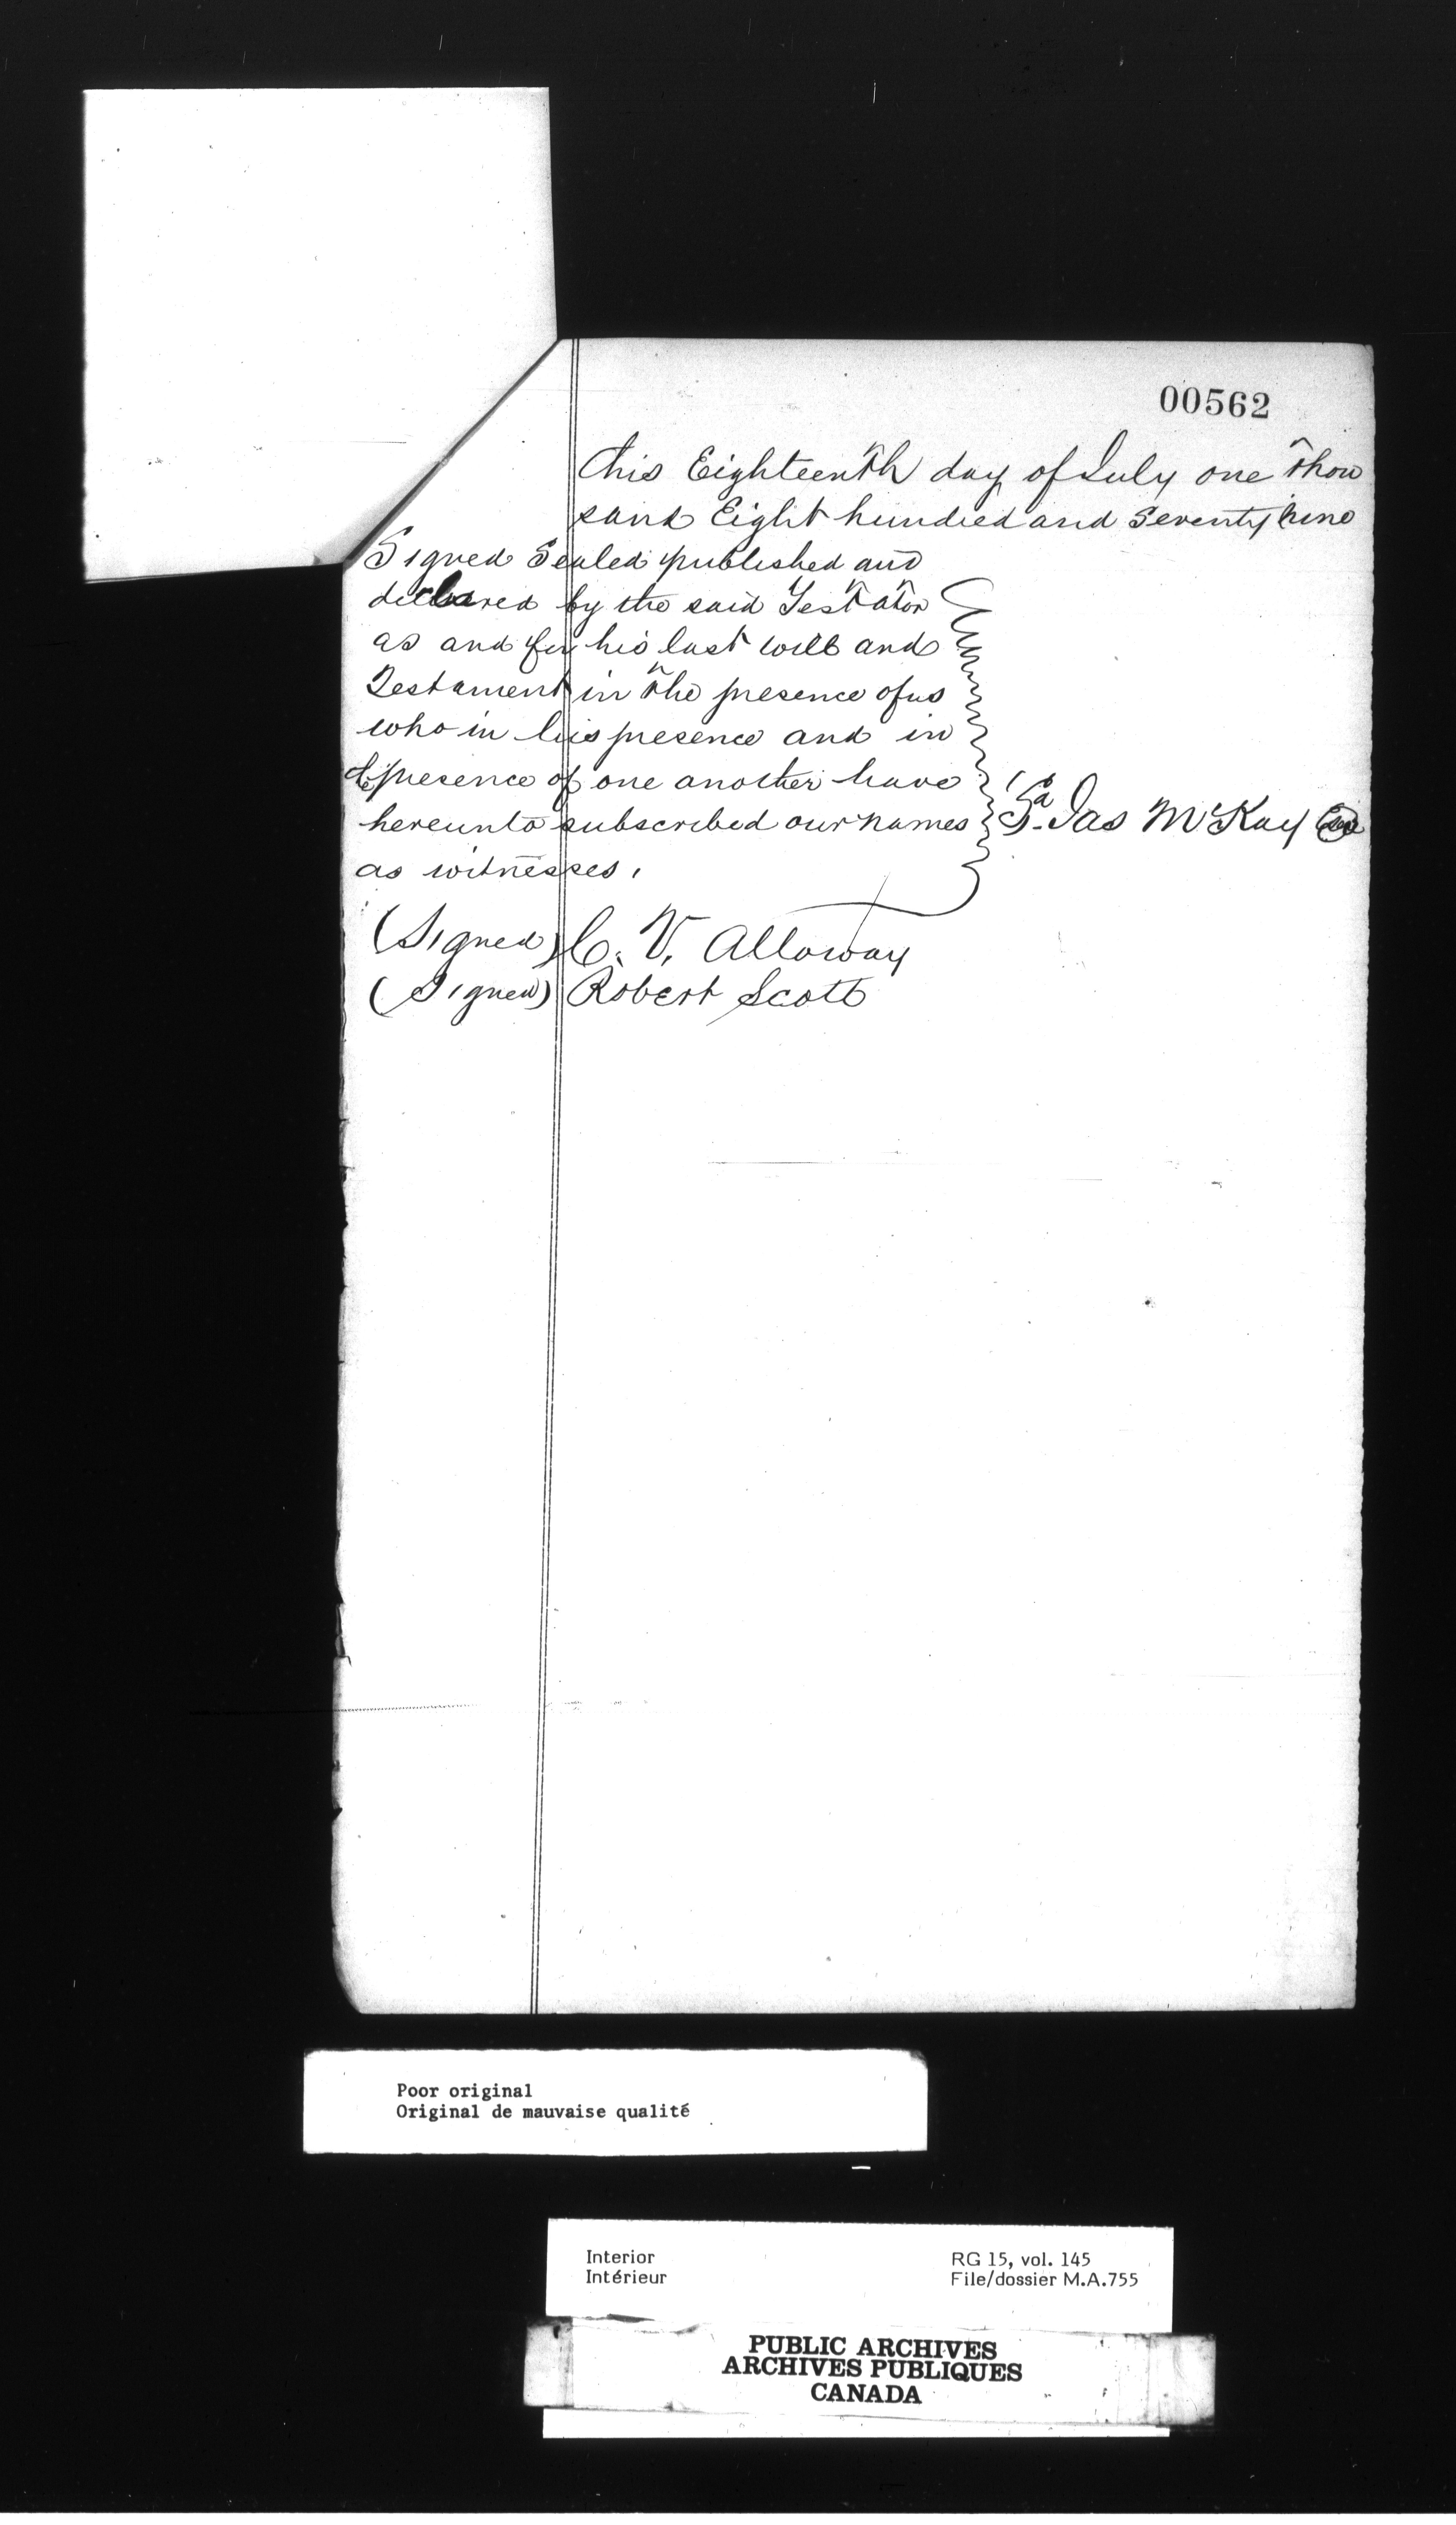 00562
this Eighteenth day of July one thou
sand Eight hundred and Seventy nine
Signed Sealed published and
declared by the said Testator
as and for his last will and
Testament in the presence of us
who in his presence and in
presence of one another have
hereunto subscribed our names
Jas McKay
as witnesses.
(Signed) C. V. Alloway
(Signed) Robert Scott
Poor original
Original de mauvaise qualité
Interior
Intérieur
RG 15, vol. 145
File/dossier M.A.755
PUBLIC ARCHIVES
ARCHIVES PUBLIQUES
CANADA